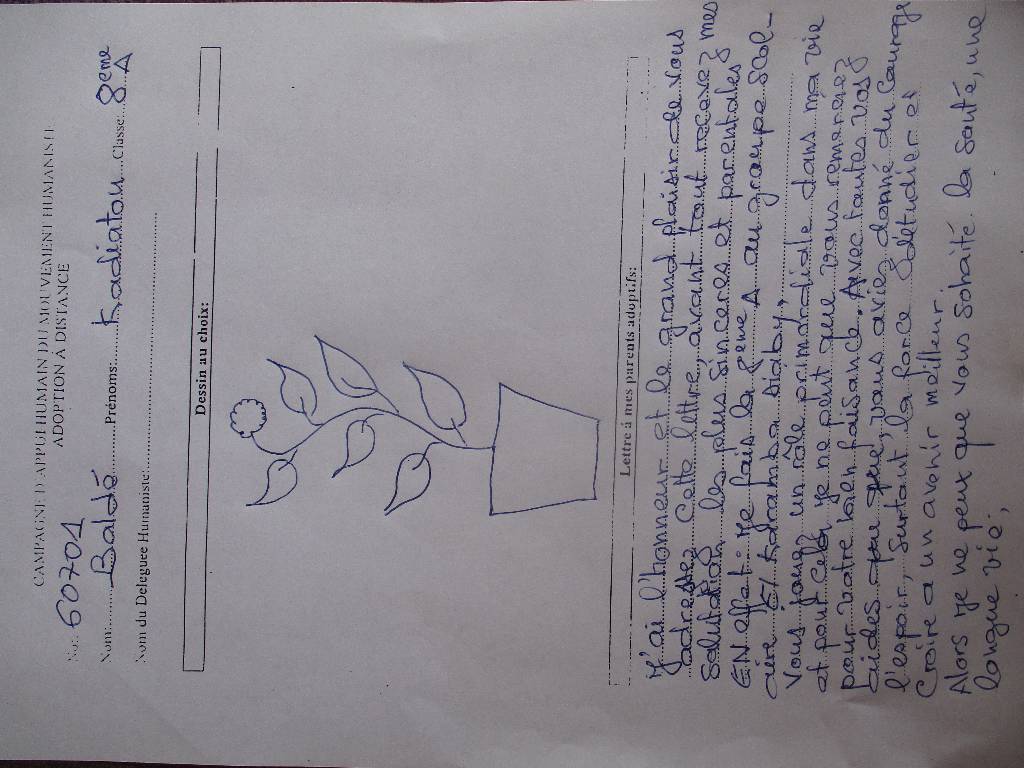 CAMPAGNE D'APPUI HUMAIN DU MOUVEMENT HUMANISTE
ADOPTION À DISTANCE
No: 60701
Nom: Baldé Prénoms: Kadiatou Classe: 8eme A
Nom du Deleguee Humaniste:
Dessin au choix:
Lettre à mes parents adoptifs:
J'ai l'honneur et le grand plaisir de vous
adressez cette lettre, avant tout recevez mes
salutation les plus sincères et parentales
EN effet: je fais la 8eme A au groupe scol-
aire El Hdramba Diaby,
Vous jouez un rôle primordiale dans ma vie
et pour cela je ne peut que vous remerierez
pour votre bien faisance. Avec toutes vos
aides que que, vous avies donné du courage
l'espoir, surtout la force d'etudier et
Croire a un avenir meilleur
Alors je ne peux que vous sohaité la santé, une
longue vie;